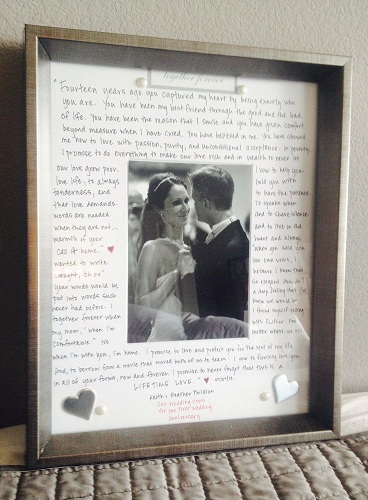 together forever
"Fourteen years ago you captured my heart by being exactly who
you are. You have been my best friend through the good and the bad
of life. You have been the reason that I smile and you have given comfort
beyond measure when I have cried. You have believed in me. You have showed
me how to love with passion, purity, and unconditional acceptance. In poverty,
I promise to do everything to make our love rich and in wealth to never let
our love grow poor. I vow to help you
love life, to always hold you with
tenderness, and to have the patience
that love demands. To speak when
words are needed and to share silence
when they are not... and to live in the
warmth of your heart and always
call it home."
wanted to write our own vows, I
because I knew that
your words would be
put into words such a deep feeling that I'm
never had before. I
together forever when I found myself sitting
my mom, "when I'm
comfortable" No matter where we are
when I'm with you, I'm home. I promise to love and protect you for the rest of my life.
And, to borrow from a movie that moved both of us to tears: I vow to fiercely love you
in all of your forms, now and forever. I promise to never forget that this is a
LIFETIME LOVE."
Keith + Heather
our wedding vows
for our first wedding
anniversary